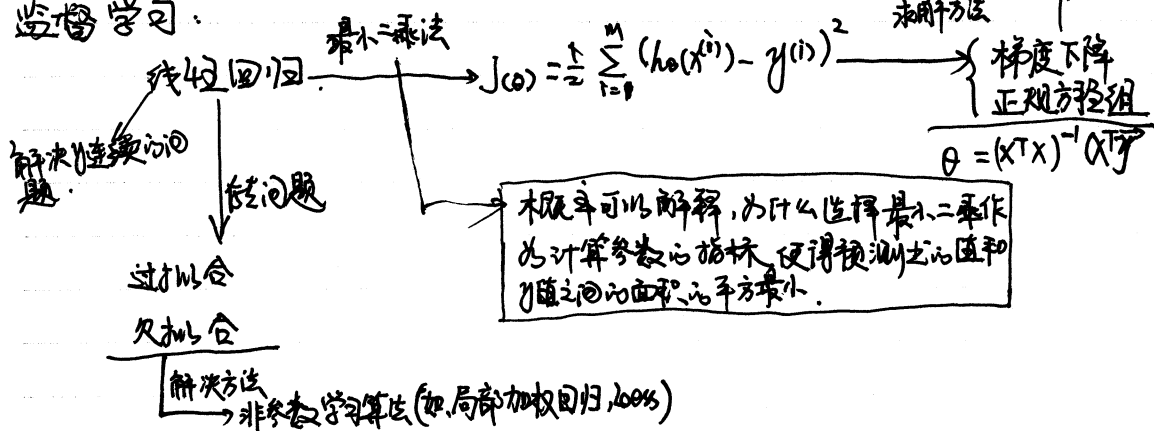 监督学习：
最小二乘法
求解方法
线性回归
J(θ) = 1/2 ∑ i=1 m (hθ(x(i)) - y(i))²
梯度下降
正规方程组
θ = (XᵀX)⁻¹(Xᵀy⃗)
解决y连续的问
题.
存在问题
概率可以解释,为什么选择最小二乘作
为计算参数的指标,使得预测出的值和
y值之间的面积的平方最小.
过拟合
欠拟合
解决方法
非参数学习算法(如,局部加权回归,loess)